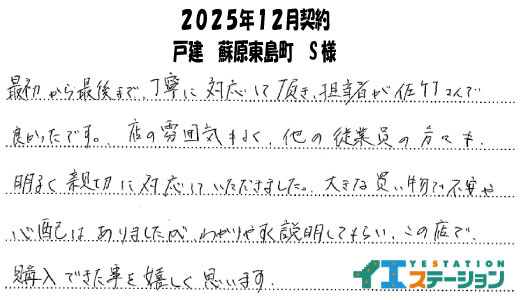 2025年12月契約
戸建 蘇原東島町 S様
最初から最後まで、丁寧に対応して頂き、担当者が佐竹さんで
良かったです。店の雰囲気もよく、他の従業員の方々も、
明るく親切に対応していただきました。大きな買い物で不安や
心配はありましたが、わかりやすく説明してもらい、この店で、
購入できた事を嬉しく思います。
YESTATION
イエステーション